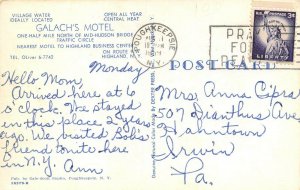 VILLAGE WATER
LIGHTED
OPEN ALL YEAR
CENTRAL HEAT
GALACH'S MOTEL
ONE-HALF MILE NORTH OF MID-HUDSON BRIDGE
TRAFFIC CIRCLE
NEAREST MOTEL TO HIGHLAND BUSINESS CENTER
ON ROUTE
HIGHLAND, N.
Tel. OLiver 6-7742
POUGHKEEPSIE
N.Y.
PRA
FO
3¢
LIBERTY
POSTCARD
Monday
Hello Mom,
Arrived here at 6
o'clock. We stayed
in this place 2 years
ago. We visited Bob's
friend tonite here
in N.Y. Ann
Mrs. Anna Cipra
507 Dianthus Ave
Hahntown
Irwin
Pa.
Pub. by Poughkeepsie, N. Y.